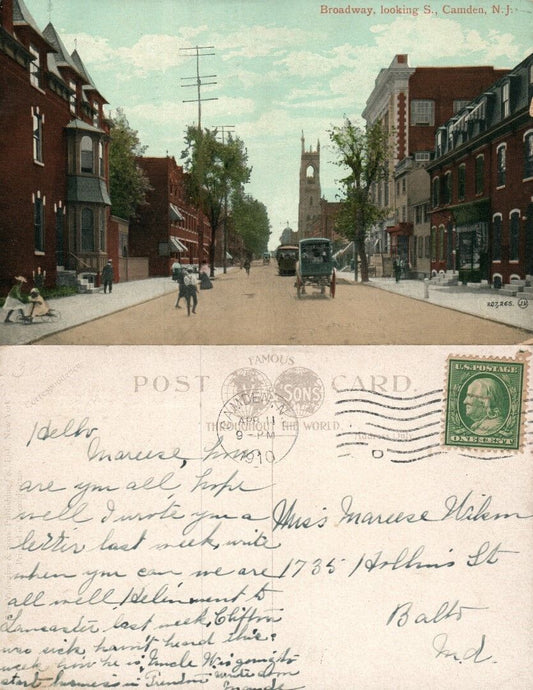 Broadway, looking S., Camden, N.J.
207,265. (JV)
FAMOUS
POST CARD.
THROUGHOUT THE WORLD
CAMDEN, N.J.
APR 11
9 - PM
1910
U.S. POSTAGE
ONE CENT
Hello
Mareese, how
are you all, hope
well I wrote you a
letter last week, write
when you can we are
all well Helen went to
Lancaster last week, Clifton
was sick havn't heard this
week how he is, Uncle Wis going to
start business in Trenton write soon
Mamie
Miss Mareese Wilson
1735 Hollins St
Balto
Md.